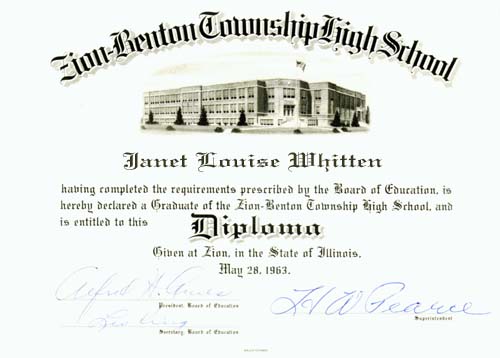 Zion-Benton Township High School
Janet Louise Whitten
having completed the requirements prescribed by the Board of Education, is
hereby declared a Graduate of the Zion-Benton Township High School, and
is entitled to this Diploma
Given at Zion, in the State of Illinois,
May 28, 1963.
Alfred H. Ames
President, Board of Education
H W Pearce
Superintendent
Secretary, Board of Education